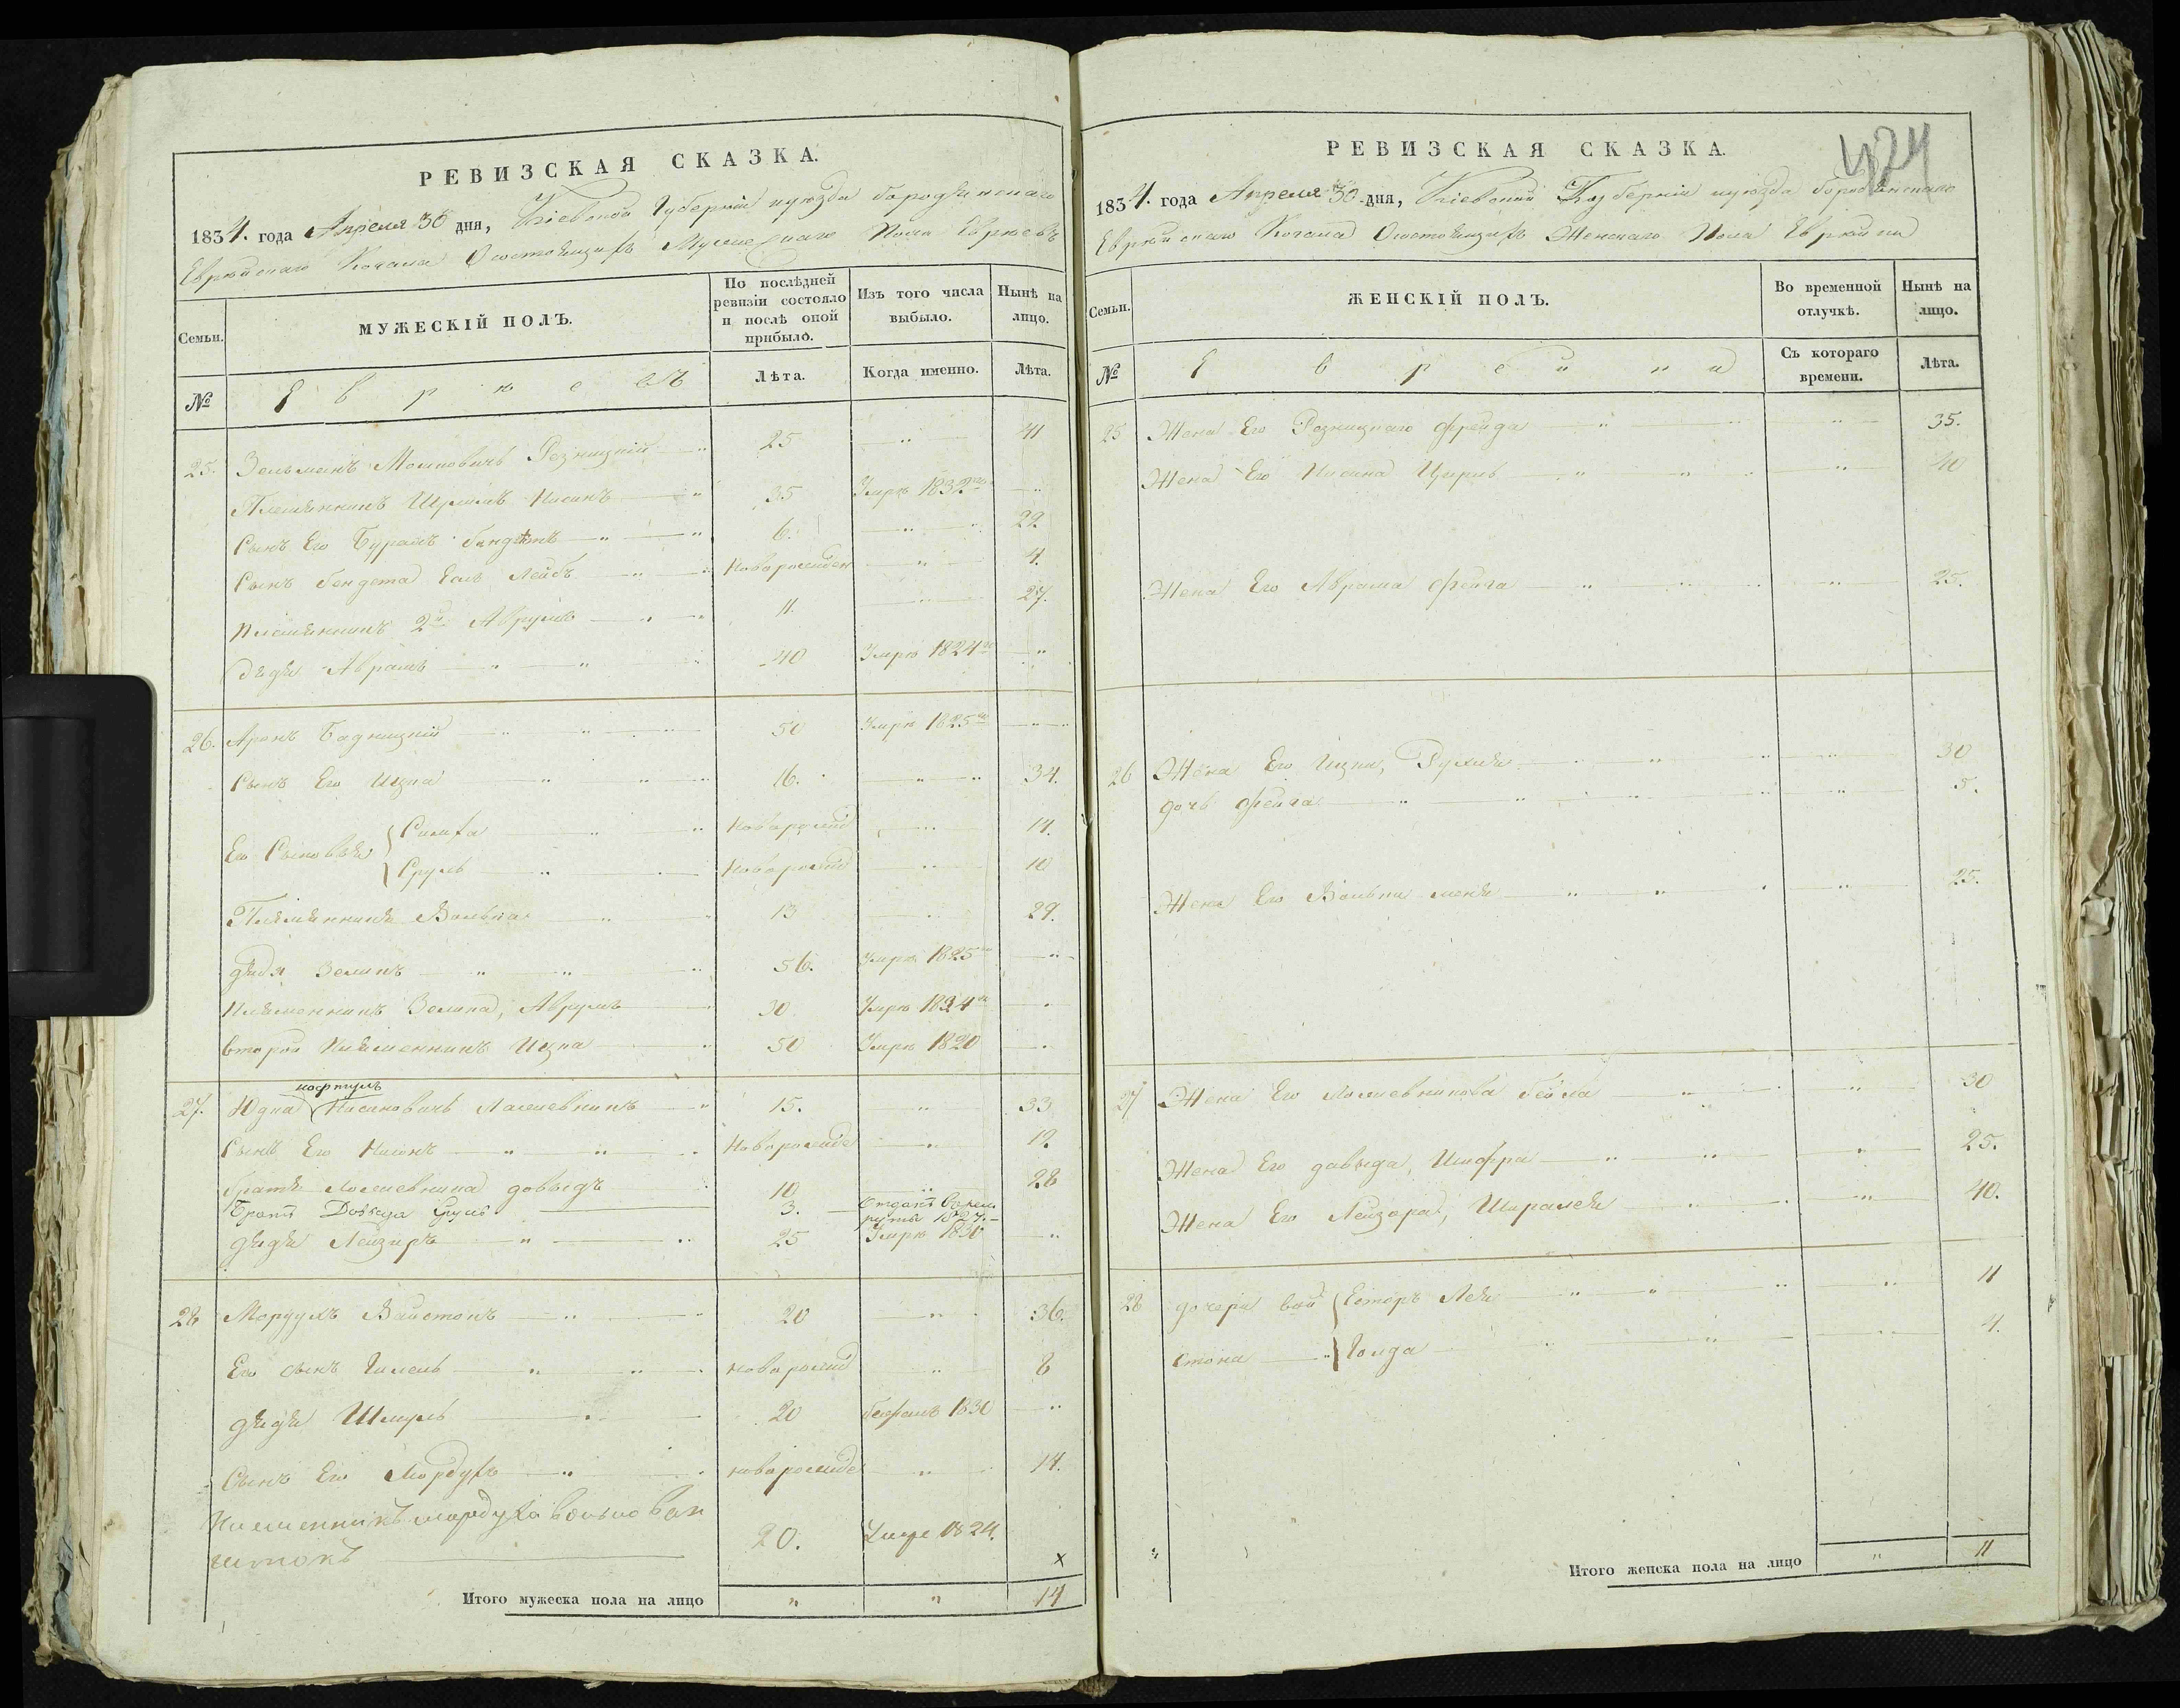 РЕВИЗСКАЯ СКАЗКА.
1834. года Апреля 30 дня, Кіевской Губерніи уѣзда
Еврейскаго Кагала Состоящихъ Мужескаго Пола Евреевъ
Семьи.
МУЖЕСКІЙ ПОЛЪ.
По послѣдней ревизіи состояло и послѣ оной прибыло.
Изъ того числа выбыло.
Нынѣ на лицо.
№
Е в р е е въ
Лѣта.
Когда именно.
Лѣта.
25. Зельманъ Резницкій 25 41
Племянникъ Нисинъ 35 Умре 1832го
Сынъ Его 6. 22
Сынъ Лейбъ Новорожден 4.
Племянникъ 2й Аврумъ 11. 27.
Дядя Аврамъ 40 Умре 1824го
26. Аронъ 50 Умре 1825го
Сынъ Его Ицка 16. 34.
Его Сыновья { Симха Новорожд 14.
{ Сруль Новорожд 10
Племянникъ Волька 13 29.
дядя Зеликъ 56. Умре 1825го
Племенникъ Зелика, Аврумъ 30 Умре 1834го
второй Племенникъ Ицка 50 Умре 1820
нафтулъ
27. Юдка Нисиновичъ 15. 33
Сынъ Его Нисонъ Новорожде 12
братъ довыдъ 10 28
Братъ Довыда Сруль 3. Отданъ в рекруты 1827.
дядя Лейзоръ 25 Умре 1830
28 Мордухъ Вайстокъ 20 36.
Его сынъ Новорожд 8
дядя Шмуль 20 бежалъ 1830
Сынъ Его Мордухъ новорожде 14.
Племенникъ мордуха волько вай
штокъ 20. Умре 1824.
х
Итого мужеска пола на лицо " " 14
424
РЕВИЗСКАЯ СКАЗКА.
1834. года Апреля 30 дня, Кіевской Губерніи уѣзда
Еврейскаго Кагала Состоящихъ Женскаго Пола
Семьи.
ЖЕНСКІЙ ПОЛЪ.
Во временной отлучкѣ.
Нынѣ на лицо.
№
Съ котораго времени.
Лѣта.
25 Жена Его Резницкаго фрейда 35.
Жена Его Нисина 40
Жена Его Аврама фейга 25.
26 Жена Его Ицки, Рухля 30
дочь фейга 5.
Жена Его Вольки 25.
27 Жена Его бейла 30
Жена Его давыда, Шифра 25.
Жена Его Лейзора, 40.
28 дочери вай { Естеръ Лея 11
стока { Голда 4.
Итого женска пола на лицо " 11